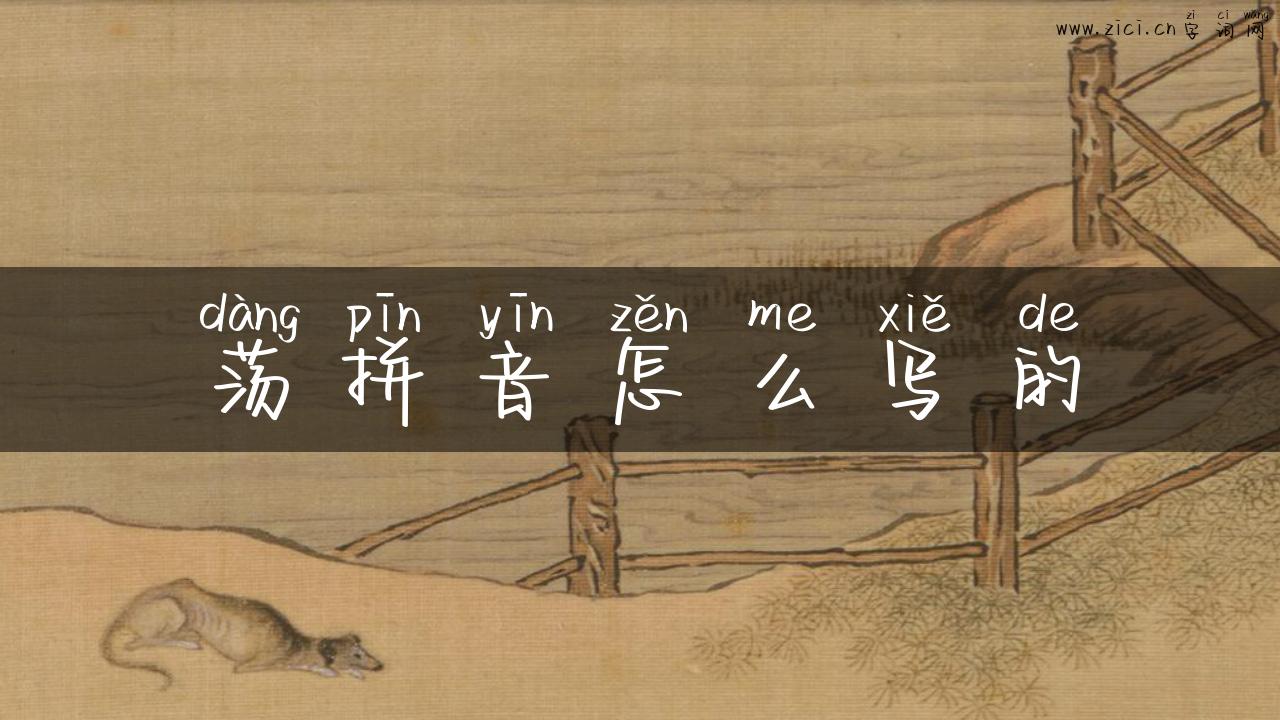 zì cí wǎng
www.zici.cn 字词网
dàng pīn yīn zěn me xiě de
荡拼音怎么写的